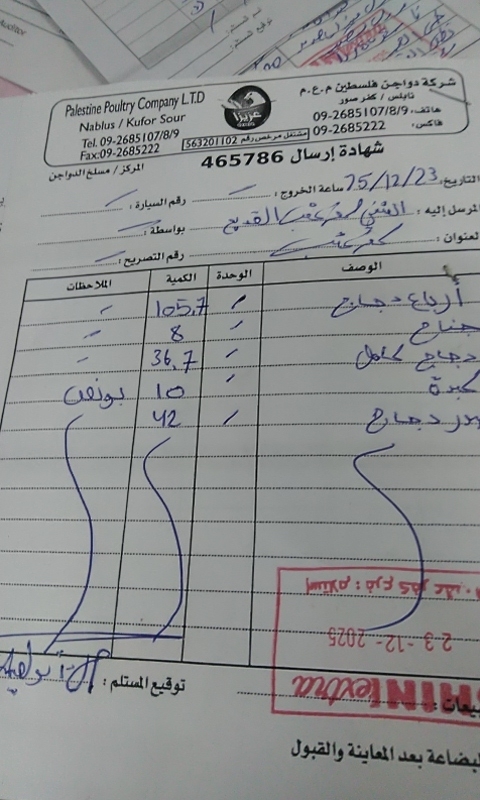 Palestine Poultry Company L.T.D
شركة دواجن فلسطين م.ع.م
Nablus / Kufor Sour
نابلس / كفر صور
Tel. 09-2685107/8/9
هاتف: 09-2685107/8/9
Fax:09-2685222
فاكس: 09-2685222
عزيزا
مشتغل مرخص رقم 563201102
شهادة إرسال 465786
المركز / مسلخ الدواجن
التاريخ: 25/12/23 ساعة الخروج: رقم السيارة:
المرسل إليه: الشني كفر عقب القديم بواسطة:
العنوان: كفر عقب رقم التصريح:
الوصف الوحدة الكمية الملاحظات
أرباع دجاج 105.7
جناح 8
دجاج كامل 36.7
كبدة 10 بونص
صدر دجاج 42
استلام: فرع كفر عقب
23-12-2025
SHINI extra
توقيع المستلم:
البضاعة بعد المعاينة والقبول